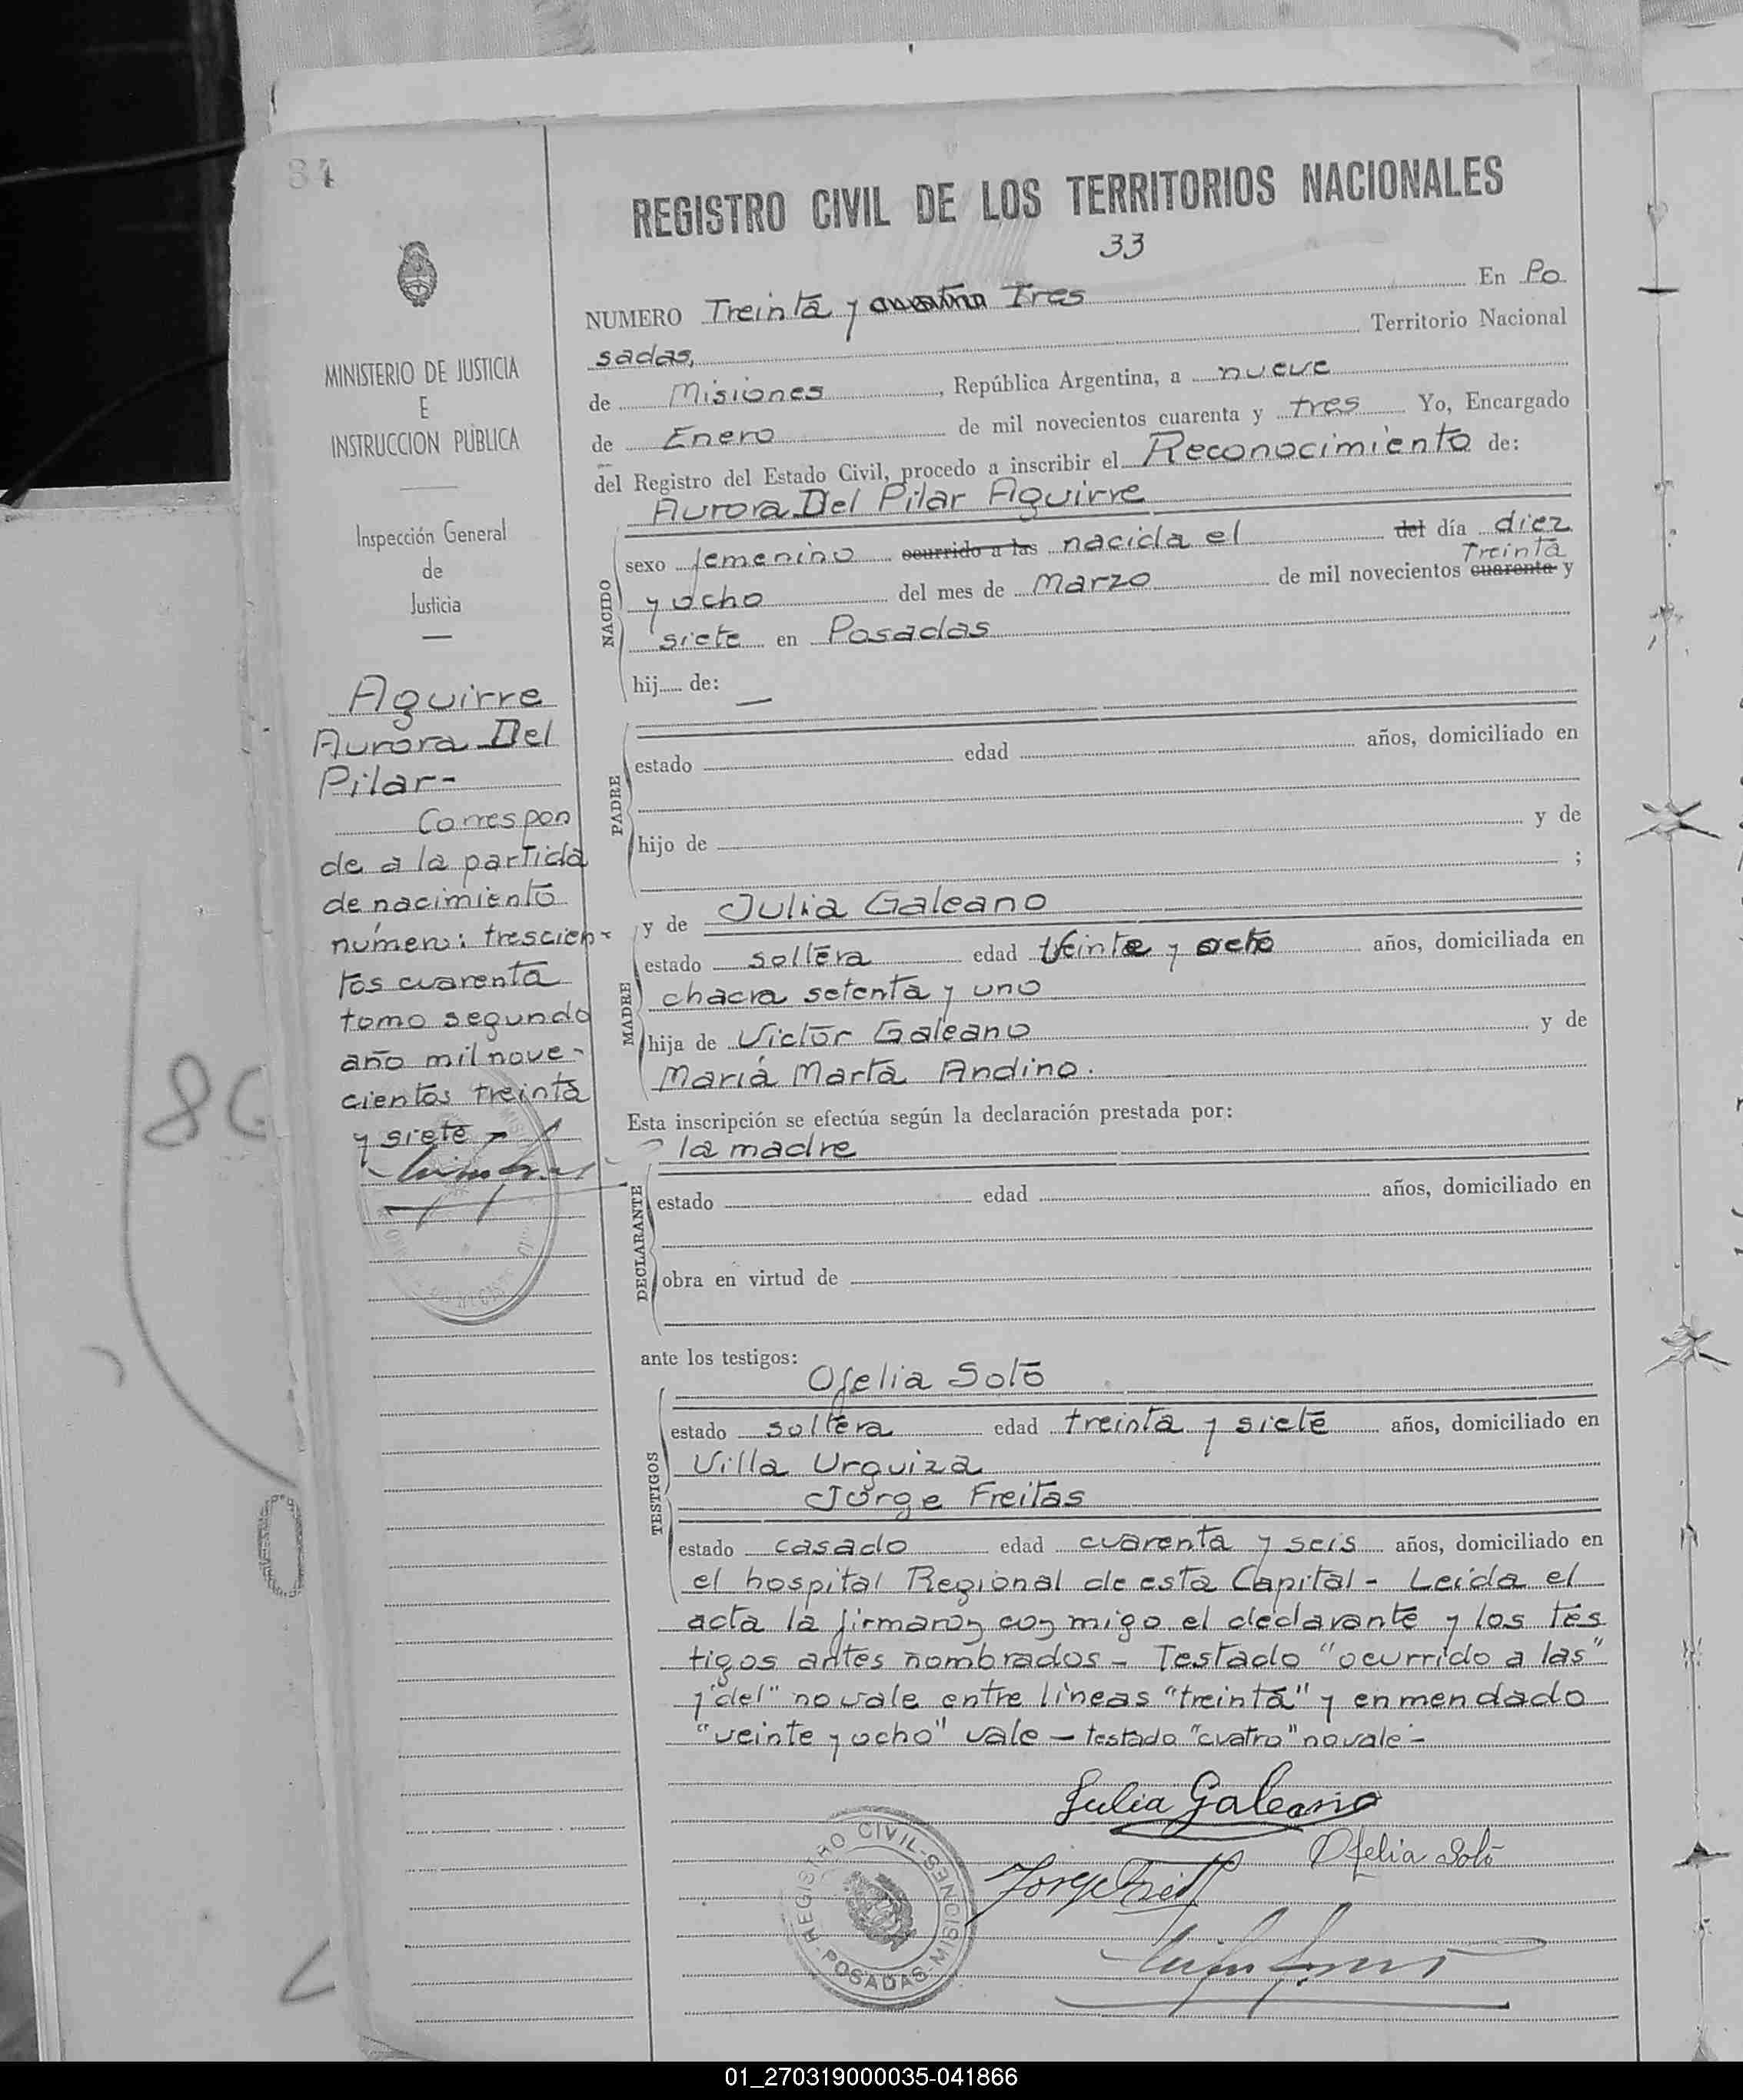 84
REGISTRO CIVIL DE LOS TERRITORIOS NACIONALES
33
MINISTERIO DE JUSTICIA
E
INSTRUCCION PÚBLICA
Inspección General
de
Justicia
Aguirre
Aurora Del
Pilar-
Correspon
de a la partida
de nacimiento
número: trescien-
tos cuarenta
tomo segundo
año mil nove-
cientos treinta
y siete -
NUMERO Treinta y cuatro Tres En Po
sadas, Territorio Nacional
de Misiones, República Argentina, a nueve
de Enero de mil novecientos cuarenta y tres Yo, Encargado
del Registro del Estado Civil, procedo a inscribir el Reconocimiento de:
Aurora Del Pilar Aguirre
NACIDO
sexo femenino ocurrido a las nacida el del día diez
Treinta
y ocho del mes de Marzo de mil novecientos cuarenta y
siete en Posadas
hij de: —
PADRE
estado edad años, domiciliado en
hijo de y de
;
y de Julia Galeano
MADRE
estado soltera edad veinte y ocho años, domiciliada en
chacra setenta y uno
hija de Victor Galeano y de
Mariá Marta Andino.
Esta inscripción se efectúa según la declaración prestada por:
la madre
DECLARANTE
estado edad años, domiciliado en
obra en virtud de
ante los testigos:
Ofelia Soto
TESTIGOS
estado soltera edad treinta y siete años, domiciliado en
Villa Urquiza
Jorge Freitas
estado casado edad cuarenta y seis años, domiciliado en
el hospital Regional de esta Capital - Leida el
acta la firmaron con migo el declarante y los tes
tigos antes nombrados - Testado "ocurrido a las"
y "del" no vale entre líneas "treinta" y enmendado
"veinte y ocho" vale - testado "cuatro" no vale -
Julia Galeano
Ofelia Soto
REGISTRO CIVIL - MISIONES - POSADAS
80
0
01_270319000035-041866